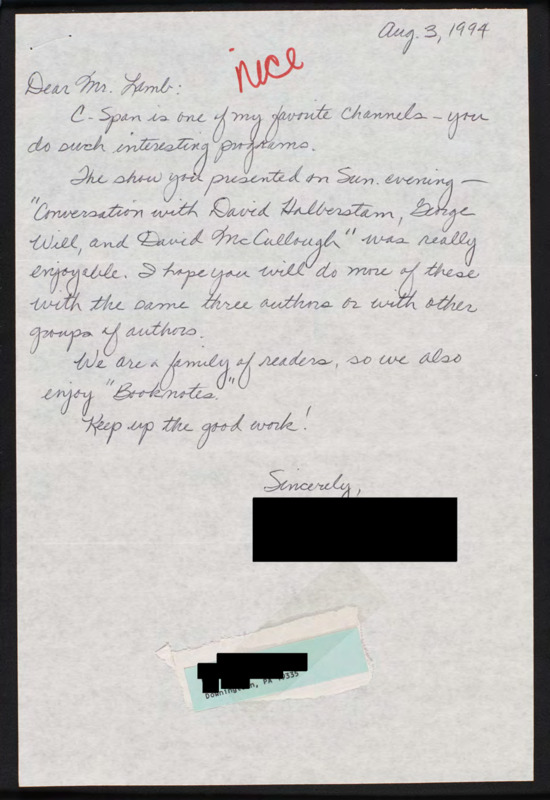 Aug. 3, 1994
nice
Dear Mr. Lamb:
C-Span is one of my favorite channels – you
do such interesting programs.
The show you presented on Sun. evening –
"Conversation with David Halberstam, George
Will, and David McCullough" was really
enjoyable. I hope you will do more of these
with the same three authors or with other
groups of authors.
We are a family of readers, so we also
enjoy "Booknotes."
Keep up the good work!
Sincerely,
PA